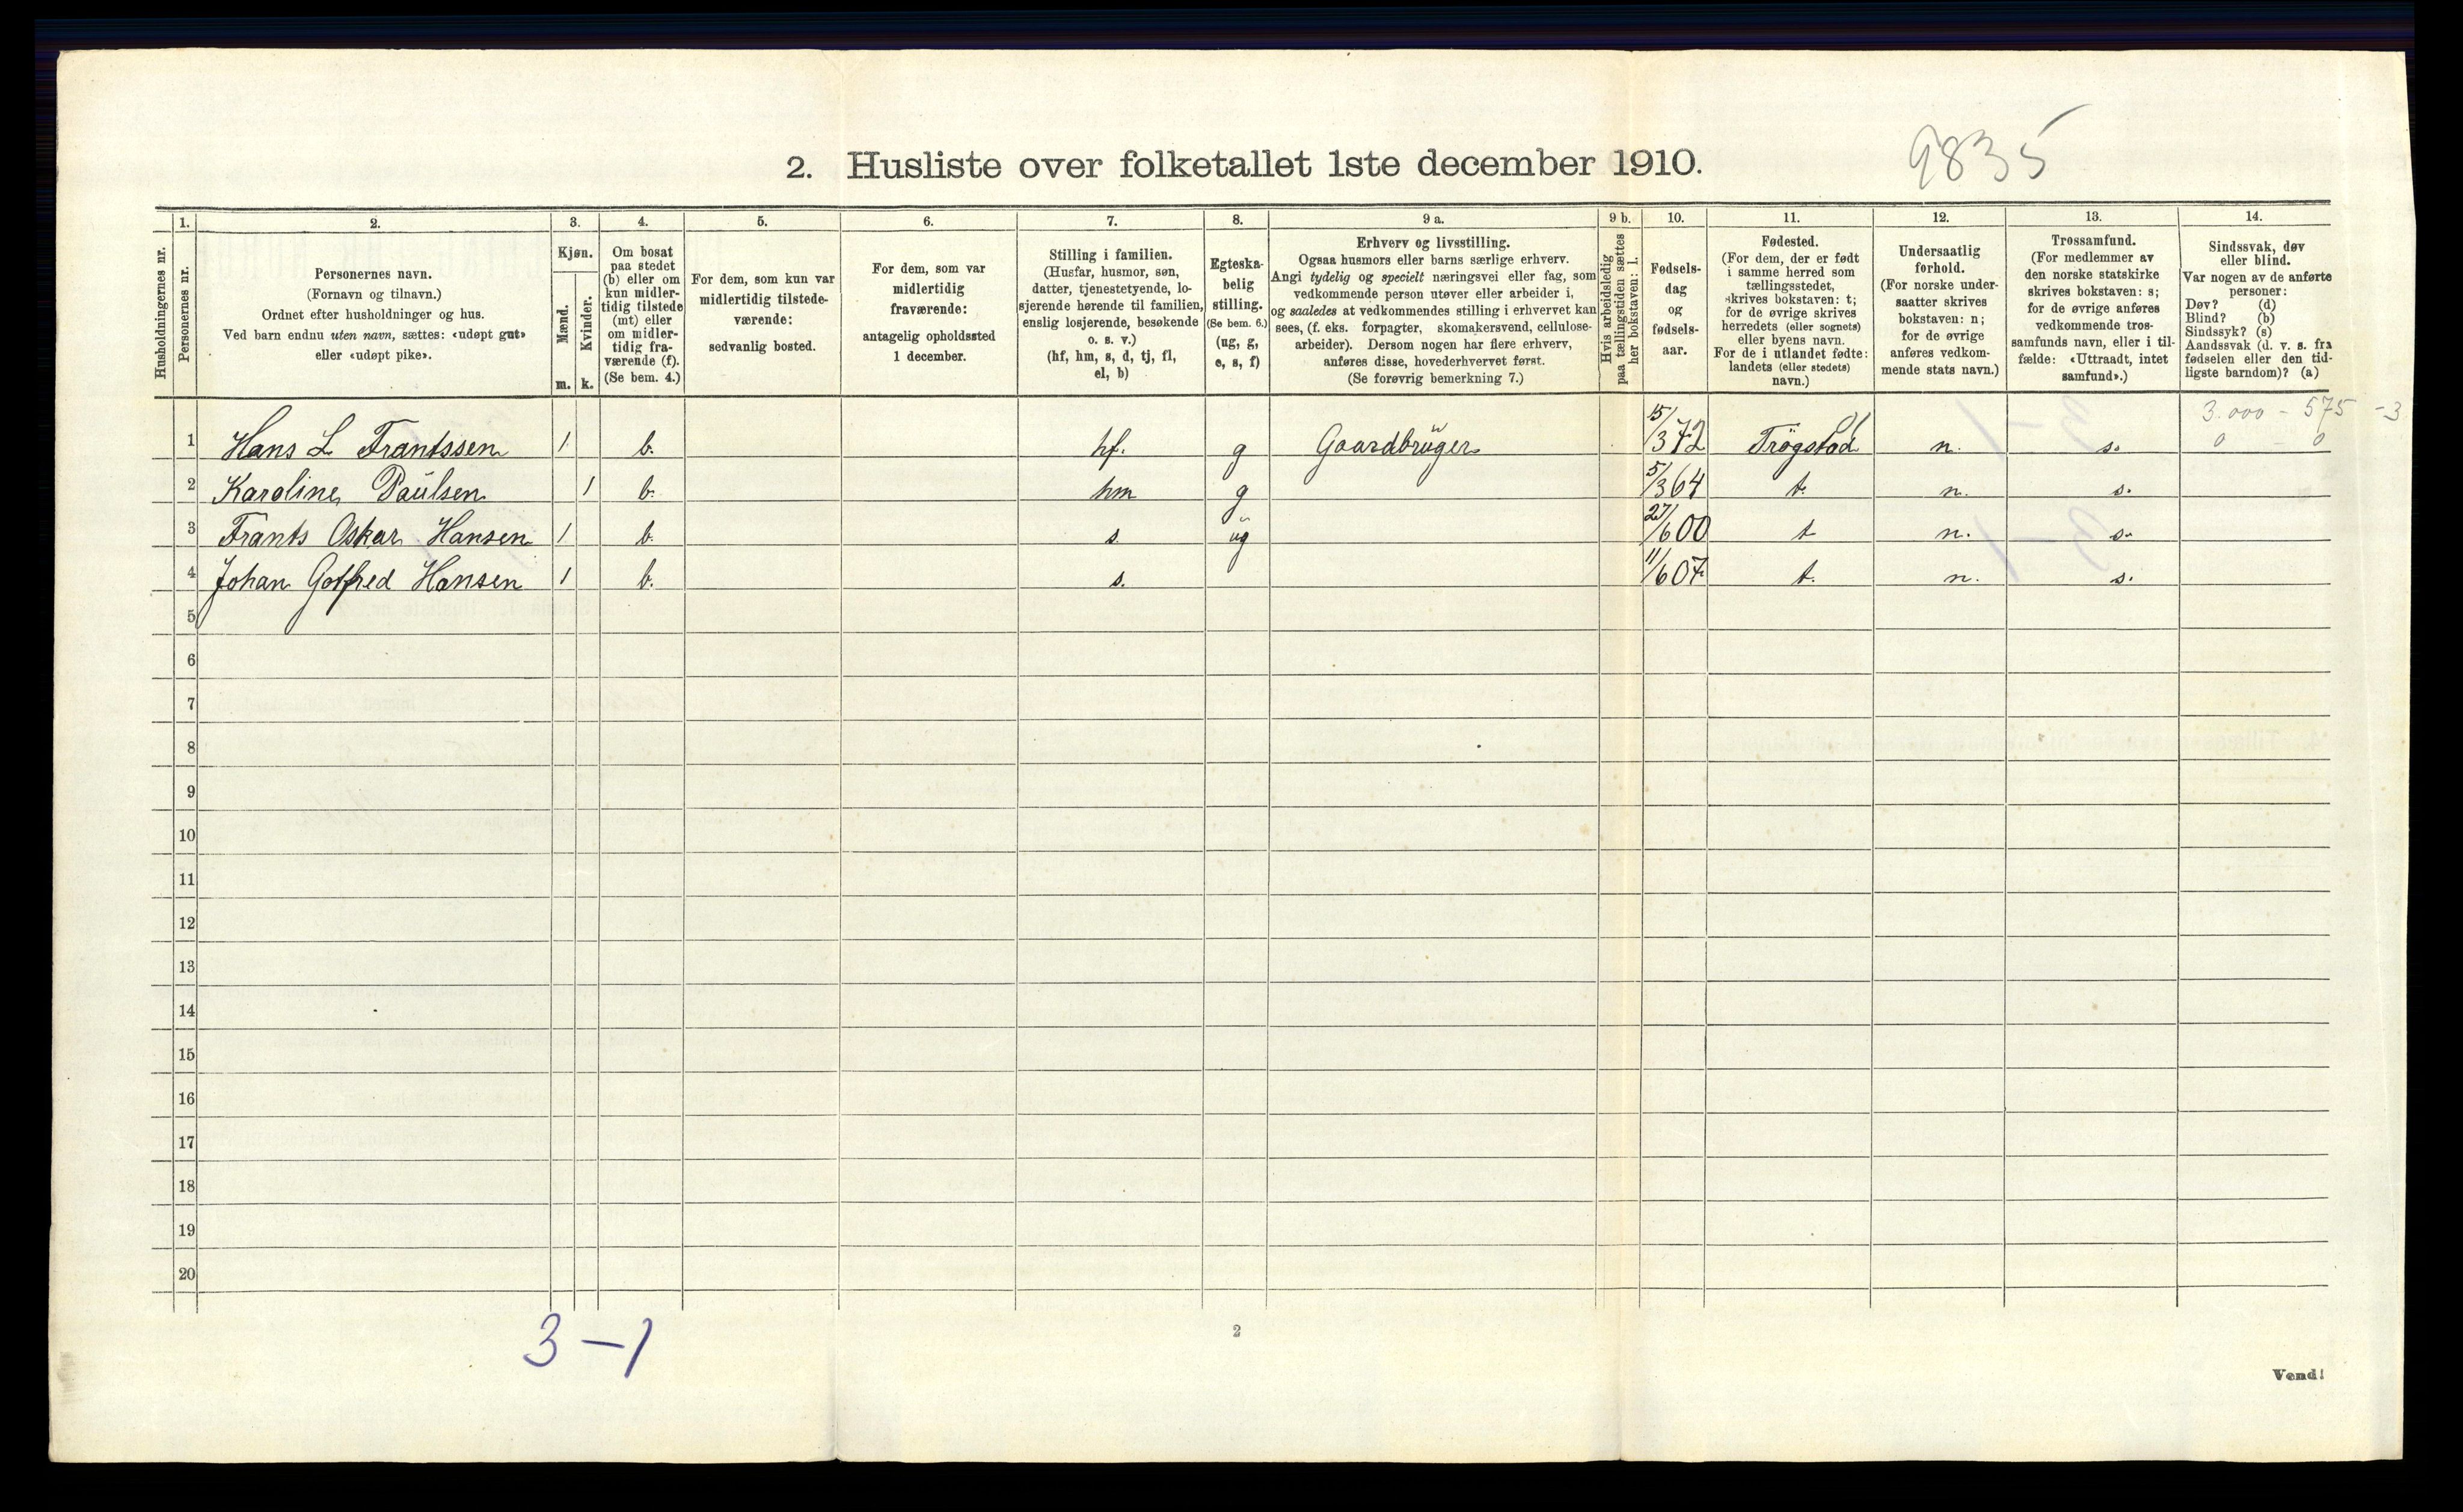 2. Husliste over folketallet 1ste december 1910.
9835
Husholdningernes nr.
1.
Personernes nr.
2.
Personernes navn.
(Fornavn og tilnavn.)
Ordnet efter husholdninger og hus.
Ved barn endnu uten navn, sættes: «udøpt gut»
eller «udøpt pike».
3.
Kjøn.
Mænd.
m.
Kvinder.
k.
4.
Om bosat
paa stedet
(b) eller om
kun midler-
tidig tilstede
(mt) eller
om midler-
tidig fra-
værende (f).
(Se bem. 4.)
5.
For dem, som kun var
midlertidig tilstede-
værende:
sedvanlig bosted.
6.
For dem, som var
midlertidig
fraværende:
antagelig opholdssted
1 december.
7.
Stilling i familien.
(Husfar, husmor, søn,
datter, tjenestetyende, lo-
sjerende hørende til familien,
enslig losjerende, besøkende
o. s. v.)
(hf, hm, s, d, tj, fl,
el, b)
8.
Egteska-
belig
stilling.
(Se bem. 6.)
(ug, g,
e, s, f)
9 a.
Erhverv og livsstilling.
Ogsaa husmors eller barns særlige erhverv.
Angi tydelig og specielt næringsvei eller fag, som
vedkommende person utøver eller arbeider i,
og saaledes at vedkommendes stilling i erhvervet kan
sees, (f. eks. forpagter, skomakersvend, cellulose-
arbeider). Dersom nogen har flere erhverv,
anføres disse, hovederhvervet først.
(Se forøvrig bemerkning 7.)
9 b.
Hvis arbeidsledig
paa tællingstiden sættes
her bokstaven: l.
10.
Fødsels-
dag
og
fødsels-
aar.
11.
Fødested.
(For dem, der er født
i samme herred som
tællingsstedet,
skrives bokstaven: t;
for de øvrige skrives
herredets (eller sognets)
eller byens navn.
For de i utlandet fødte:
landets (eller stedets)
navn.)
12.
Undersaatlig
forhold.
(For norske under-
saatter skrives
bokstaven: n;
for de øvrige
anføres vedkom-
mende stats navn.)
13.
Trossamfund.
(For medlemmer av
den norske statskirke
skrives bokstaven: s;
for de øvrige anføres
vedkommende tros-
samfunds navn, eller i til-
fælde: «Uttraadt, intet
samfund».)
14.
Sindssvak, døv
eller blind.
Var nogen av de anførte
personer:
Døv? (d)
Blind? (b)
Sindssyk? (s)
Aandssvak (d. v. s. fra
fødselen eller den tid-
ligste barndom)? (a)
3.000 - 575 -3
0 - 0
1 Hans L Frantssen 1 b. hf. g Gaardbruger 15/3 72 Trøgstad 01 n. s.
2 Karoline Paulsen 1 b. hm g 5/3 64 t. n. s.
3 Frants Oskar Hansen 1 b. s ug 27/6 00 t n. s.
4 Johan Gotfred Hansen 1 b. s. 11/6 07 t. n. s.
5
6
7
8
9
10
11
12
13
14
15
16
17
18
19
20
3-1
2
Vend!